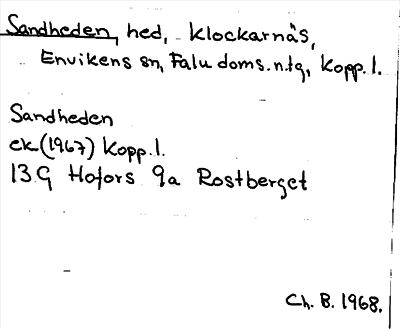 Sandheden, hed, Klockarnäs,
Envikens sn, Falu doms.ntg, Kopp. l.
Sandheden
ek (1967) Kopp. l.
13G Hofors 9a Rostberget
Ch. B. 1968.